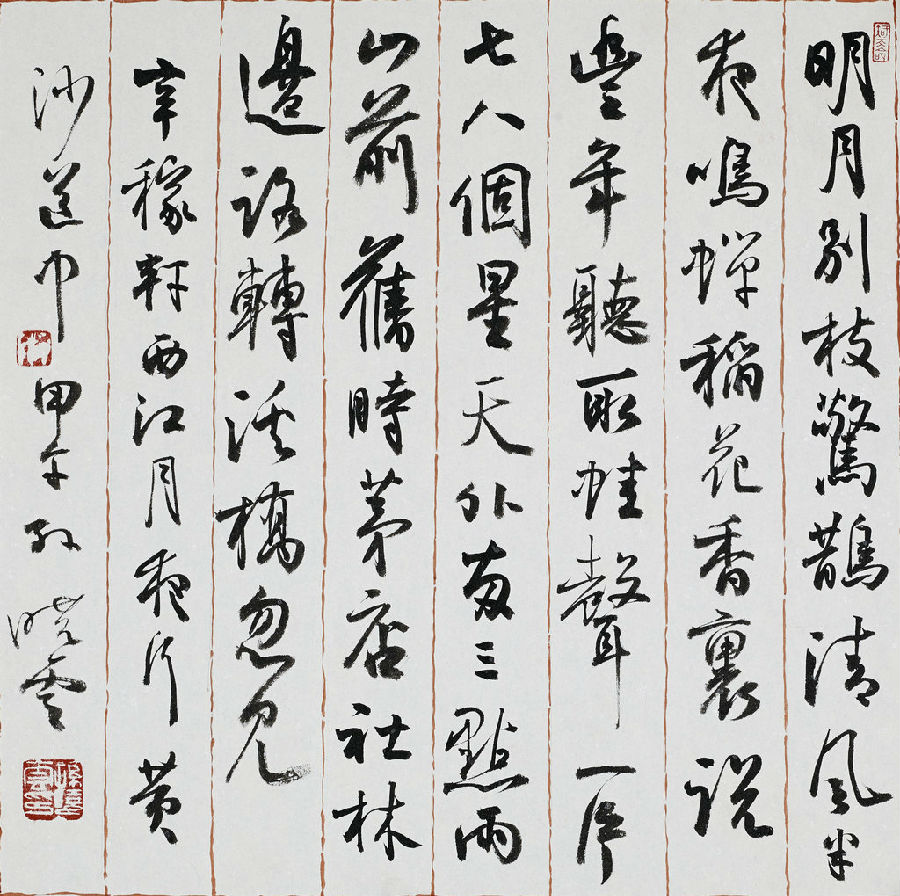 明月別枝驚鵲清風半
夜鳴蟬稻花香裏説
豐年聽取蛙聲一片
七八個星天外兩三點雨
山前舊時茅店社林
邊路轉溪橋忽見
辛稼軒西江月夜行黃
沙道中 甲午孫曉雲